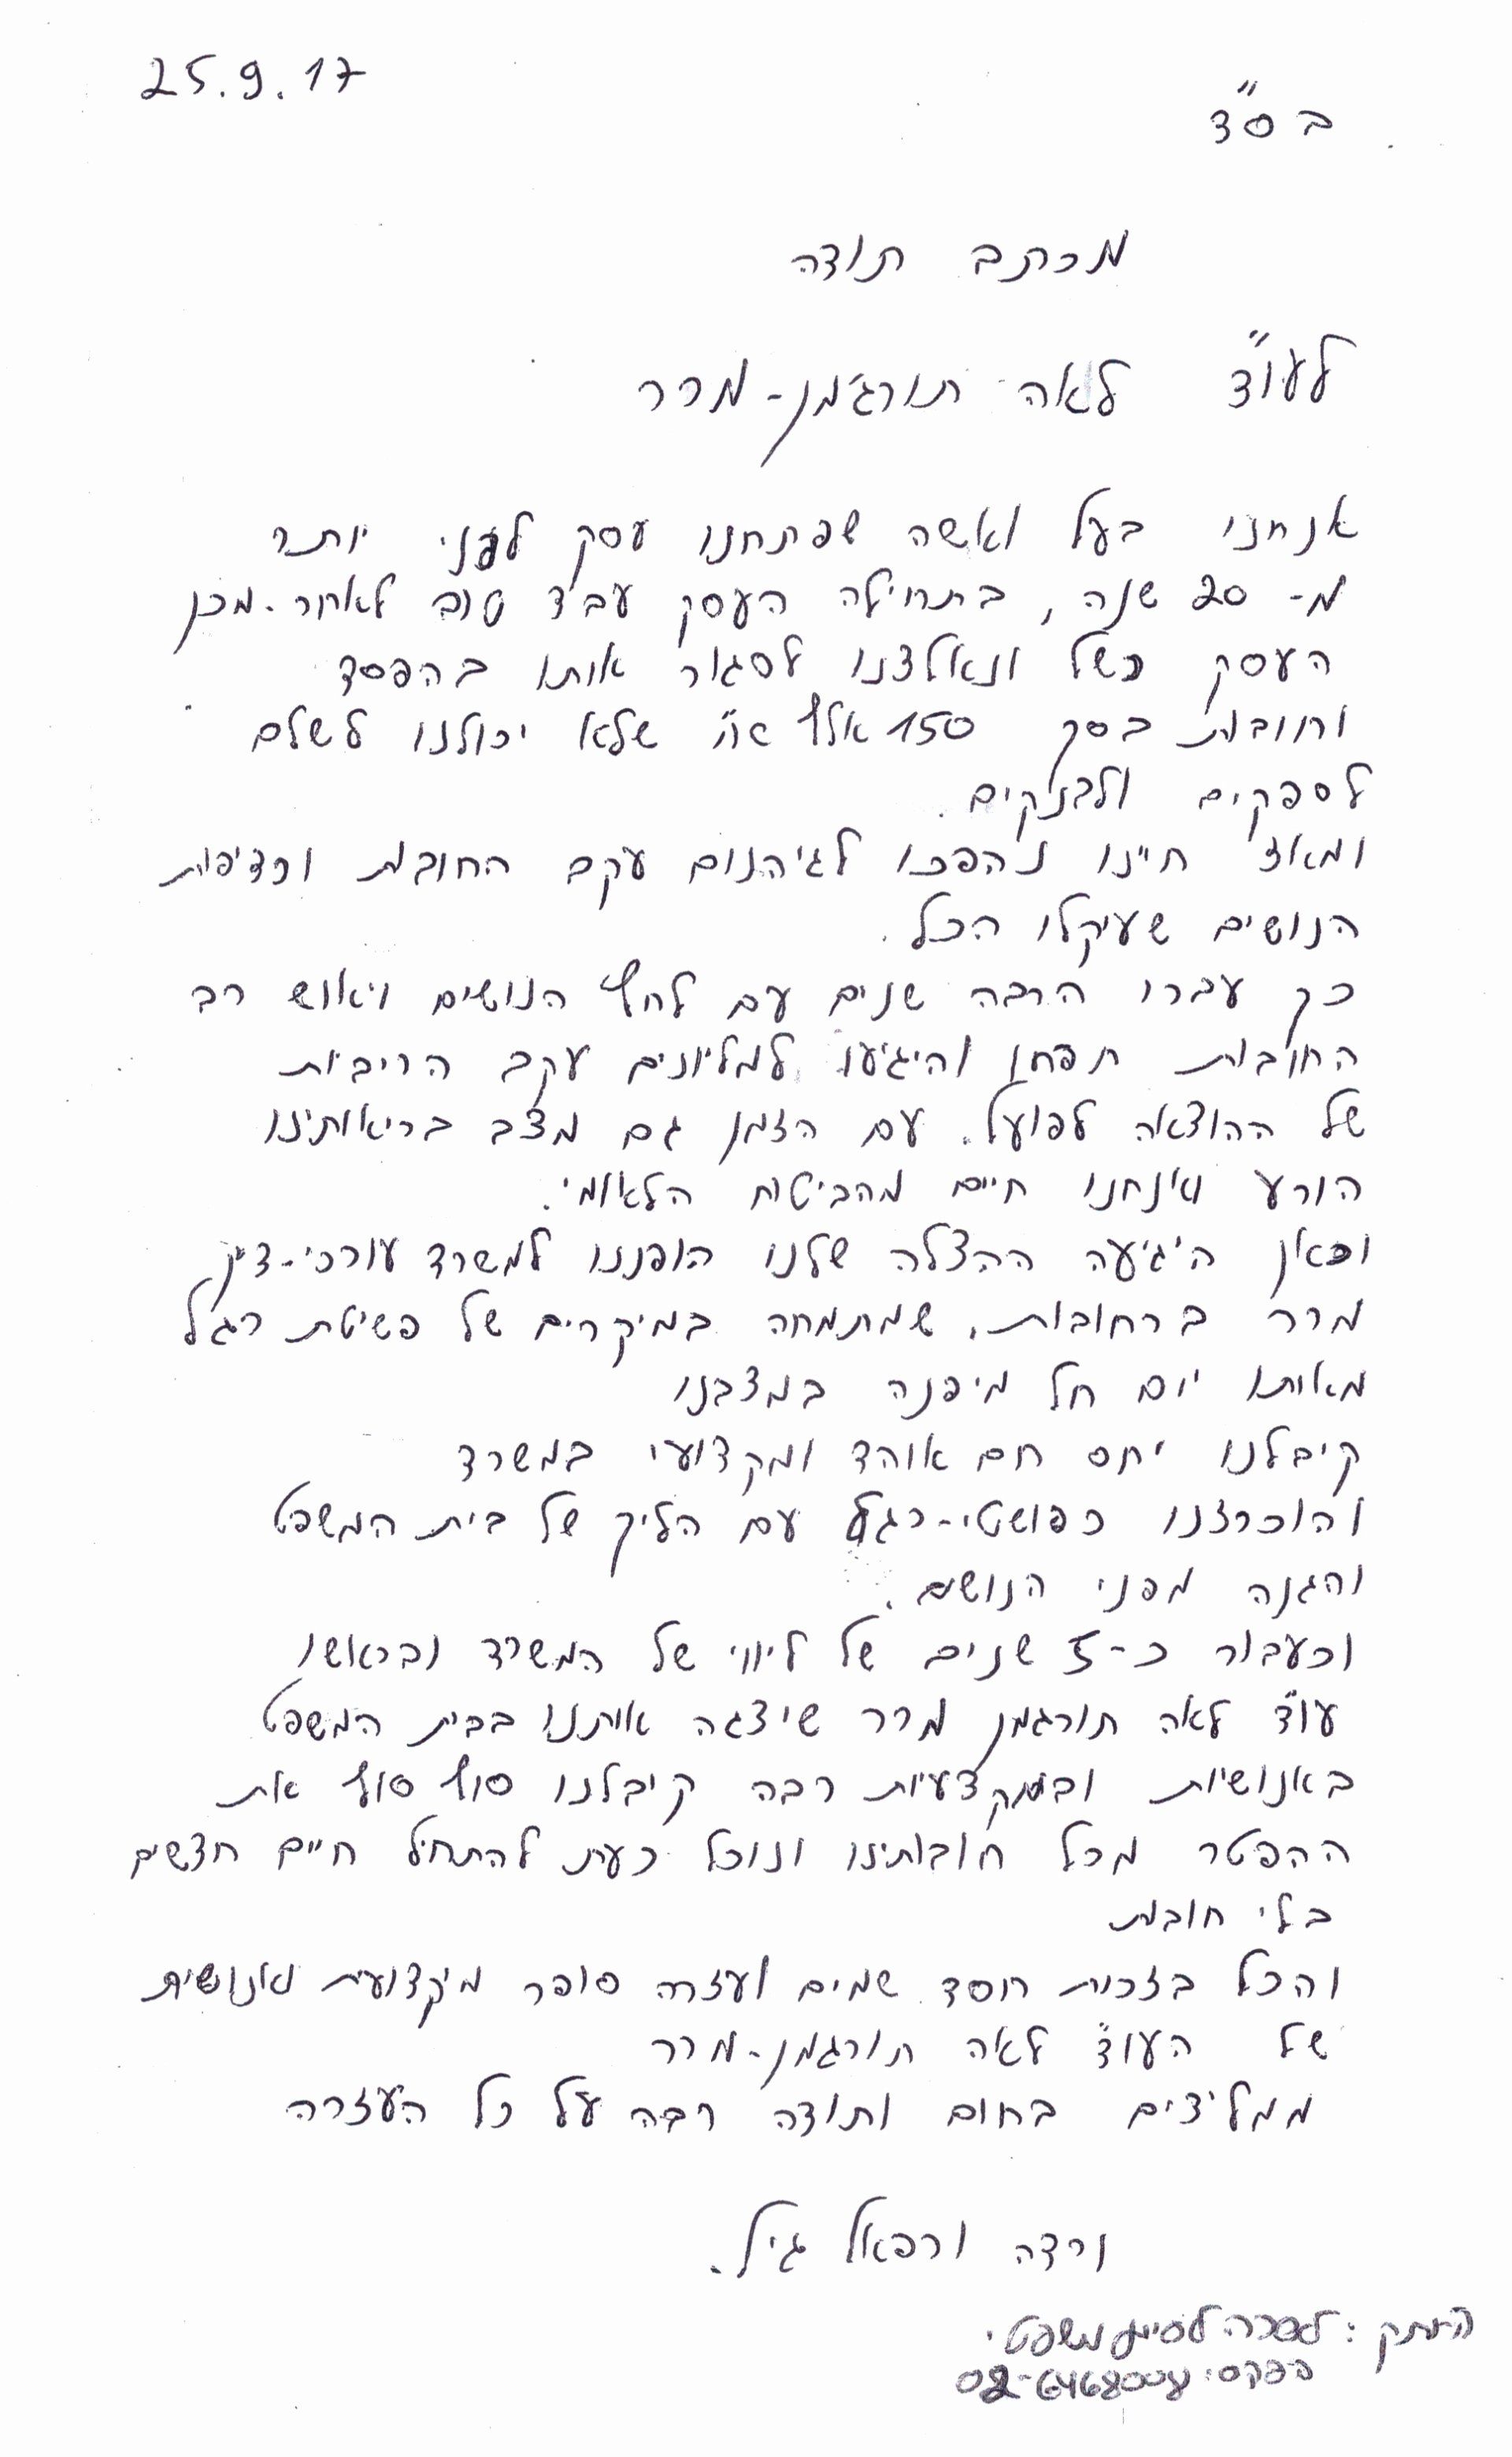 25.9.17
בס"ד
מכתב תודה
לעו"ד לאה תורג'מן-מרר
אנחנו בעל ואשה שפתחנו עסק לפני יותר
מ- 20 שנה, בתחילה העסק עבד טוב לאחר-מכן
העסק כשל ונאלצנו לסגור אותו בהפסד
וחובות בסך 150 אלף ש"ח שלא יכולנו לשלם
לספקים ולבנקים.
ומאז חיינו נהפכו לגיהנום עקב החובות ורדיפות
הנושים שעיקלו הכל.
כך עברו הרבה שנים עם לחץ הנושים ויאוש רב
החובות תפחו והיגיעו למליונים עקב הריביות
של ההוצאה לפועל. עם הזמן גם מצב בריאותינו
הורע ואנחנו חיים מהביטוח הלאומי.
וכאן היגיעה ההצלה שלנו הופננו למשרד עורכי-דין
מרר ברחובות, שמתמחה במיקרים של פשיטת רגל
מאותו יום חל מיפנה במצבנו
קיבלנו יחס חם אוהד ומקצועי במשרד
והוכרזנו כפושטי-רגל עם הליך של בית המשפט
והגנה מפני הנושים.
וכעבור כ-5 שנים של ליווי של המשרד ובראשו
עו"ד לאה תורגמן מרר שיצגה אותנו בבית המשפט
באנושיות ובמקצעיות רבה קיבלנו סוף סוף את
ההפטר מכל חובותינו ונוכל כעת להתחיל חיים חדשים
בלי חובות
והכל בזכות חסד שמים ועזרה סופר מיקצועית ואנושית
של העו"ד לאה תורגמן-מרר
ממליצים בחום ותודה רבה על כל העזרה
ורדה ורפאל גיל.
העתק: לשכה לסיוע משפטי.
בפקס: 02-6468004